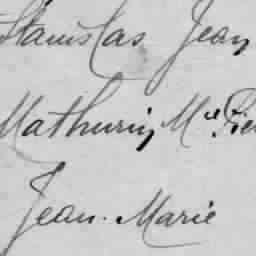 Stanislas Jean
Mathurin Mie Pie
Jean. Marie